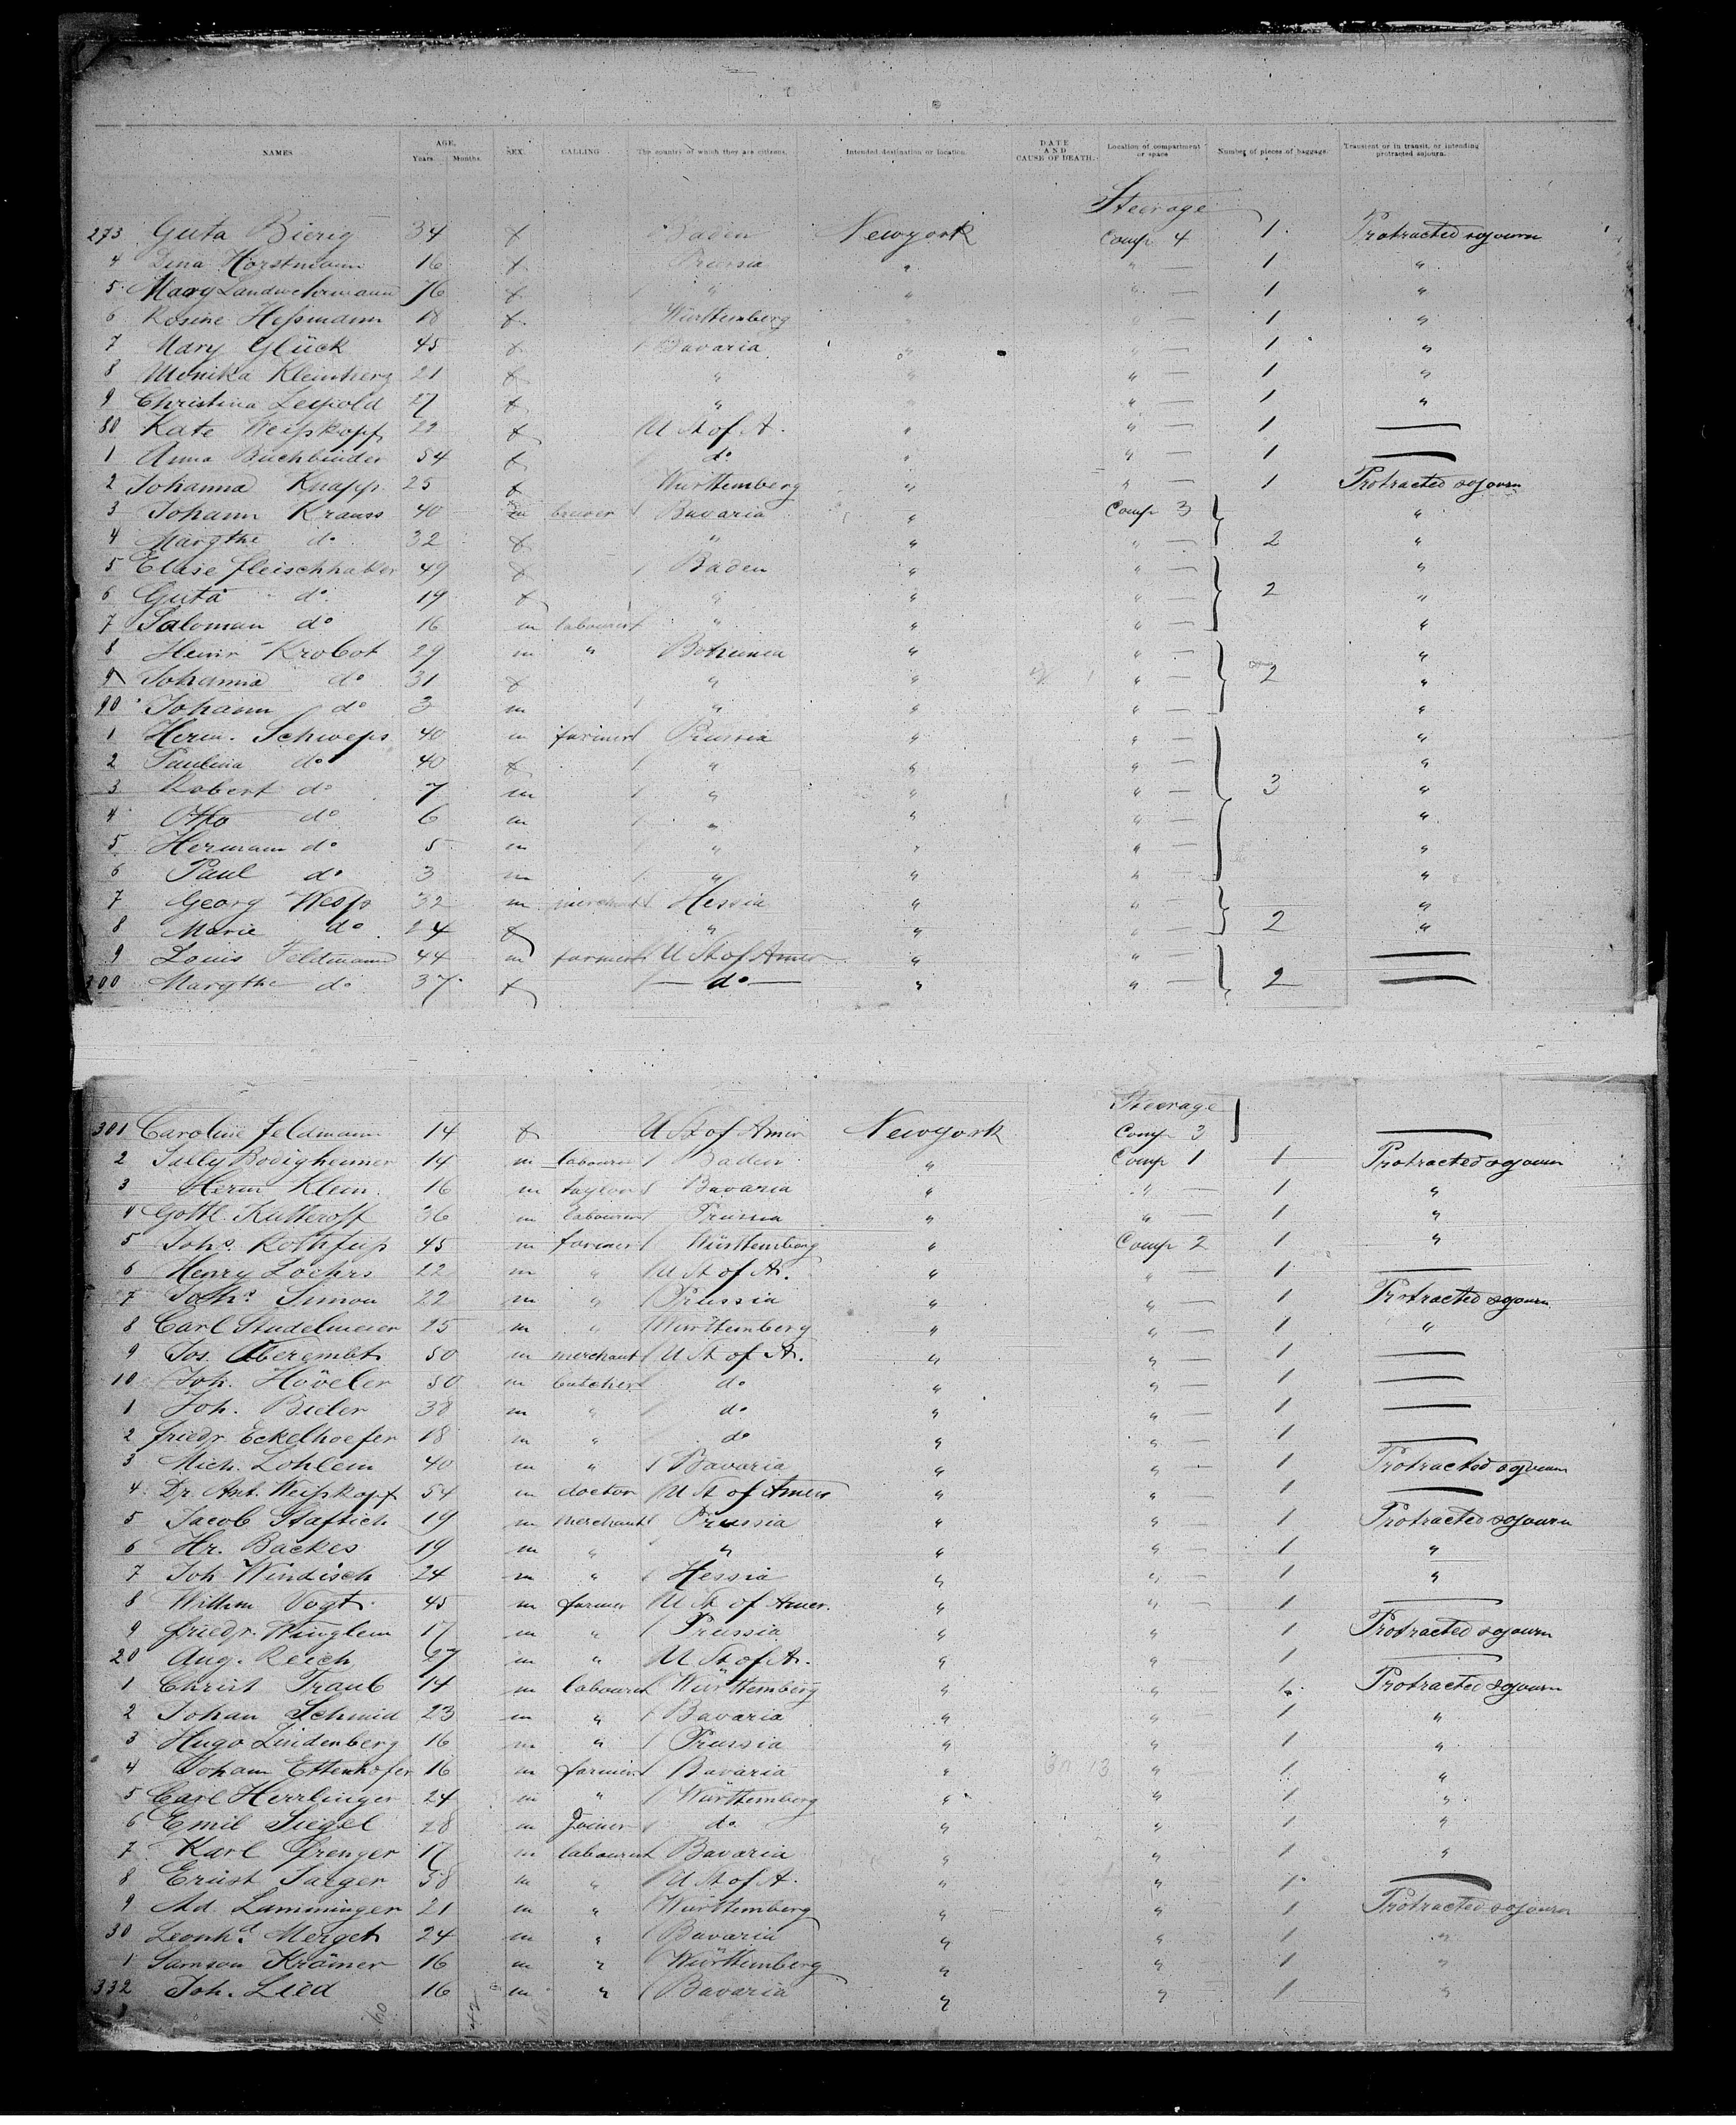 NAMES AGE. Years. Months. SEX. CALLING. The country of which they are citizens. Intended destination or location. DATE AND CAUSE OF DEATH. Location of compartment or space Number of pieces of baggage. Transient or in transit, or intending protracted sojourn.
Steerage
273 Guta Bierig 34 f Baden Newyork Comp 4 1 Protracted sojourn
4 Dina Horstmann 16 f Prussia " " — 1 "
5 Mary Landwehrmann 16 f " " " — 1 "
6 Rosine Heßmann 18 f Württemberg " — 1 "
7 Mary Glück 45 f Bavaria " " — 1 "
8 Monika Kleinherz 21 f " " " — 1 "
9 Christina Leypold 27 f " " — 1 "
80 Kate Weißkopf 22 f U St of A. " " — 1 —
1 Anna Buchbinder 54 f do " " — 1 —
2 Johanna Knapp 25 f Württemberg " " — 1 Protracted sojourn
3 Johann Krauss 40 m Bavaria " Comp 3 "
4 Margthe do 32 f " " " — 2 "
5 Elise Fleischhaker 49 f Baden " " — "
6 Guta do 19 f " " " — 2 "
7 Saloman do 16 m labourer " " " — "
8 Heinr Krobot 29 m " Bohemia " " — "
9 Johanna do 31 f " " " — 2 "
90 Johann do 3 m " " " — "
1 Herm. Schweps 40 m farmer Prussia " " — "
2 Paulina do 40 f " " " — "
3 Robert do 7 m " " " — 3 "
4 Otto do 6 m " " " — "
5 Hermann do 5 m " " " — "
6 Paul do 3 m " " " — "
7 Georg 32 m merchant Hessia " " — "
8 Marie do 24 f " " " — 2 "
9 Louis Feldmann 44 m farmer U St of Amer " " — —
300 Margthe do 37 f — do — " " — 2 —
Steerage
301 Caroline Feldmann 14 f U St of Amer Newyork Comp 3 —
2 Sally Bodigheimer 14 m labourer Baden " Comp 1 1 Protracted sojourn
3 Herm Klein 16 m taylor Bavaria " " — 1 "
4 Gottl. Kutteroff 36 m labourer Prussia " " — 1 "
5 Johs. Rothfuß 45 m farmer Württemberg " Comp 2 1 "
6 Henry Lochrs 22 m " U St of A. " " — 1 —
7 Johs Simon 22 m " Prussia " " — 1 Protracted sojourn
8 Carl Studelmeier 25 m " Württemberg " " — 1 "
9 Jos. Oberembt 50 m merchant U St of A. " " — 1 —
10 Joh. Höveler 50 m butcher do " " — 1 —
1 Joh. Bieler 38 m " do " " — 1 —
2 Friedr Eckelhoefer 18 m " do " " — 1 —
3 Mich. Lohlein 40 m " Bavaria " " — 1 Protracted sojourn
4 Dr. Ant. Weißkopf 54 m doctor U St of Amer " " — 1 —
5 Jacob 19 m merchant Prussia " " — 1 Protracted sojourn
6 Hr. Backes 19 m " " " " — 1 "
7 Joh Windisch 24 m " Hessia " " — 1 "
8 Wilhm Vogt 45 m farmer U St of Amer. " " — 1 —
9 Friedr. 17 m " Prussia " " 1 Protracted sojourn
20 Aug. Reich 27 m " U St of A. " " — 1 —
1 Christ Traub 14 m labourer Württemberg " " — 1 Protracted sojourn
2 Johan Schmid 23 m " Bavaria " " 1 "
3 Hugo Lindenberg 16 m " Prussia " " 1 "
4 Johann Ettenhofer 16 m farmer Bavaria " " 1 "
5 Carl Herrlinger 24 m " Württemberg " " 1 "
6 Emil Siegel 28 m Joiner do " " 1 "
7 Karl Sprenger 17 m labourer Bavaria " " 1 "
8 Ernst Jaeger 38 m " U St of A. " " 1 —
9 Ad. Lamminger 21 m " Württemberg " " 1 Protracted sojourn
30 Leonhd. Merget 24 m " Bavaria " " 1 "
1 Samson Krämer 16 m " Württemberg " " 1 "
332 Joh. Lied 16 m " Bavaria " " 1 "